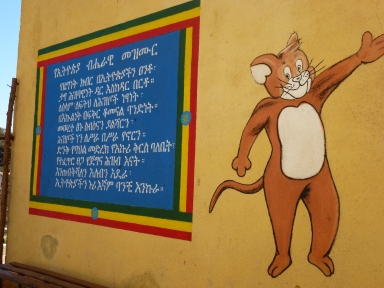 የኢትዮጵያ ብሔራዊ መዝሙር
የዜግነት ክብር በኢትዮጵያችን ፀንቶ፡
ታየ ሕዝባዊነት ዳር እስከዳር በርቶ።
ለሰላም ለፍትህ ለሕዝቦች ነፃነት፡
በእኩልነት በፍቅር ቆመናል ባንድነት።
መሠረተ ፅኑ ሰብዕናን ያልሻርን፡
ሕዝቦች ነን ለሥራ በሥራ የኖርን።
ድንቅ የባህል መድረክ የአኩሪ ቅርስ ባለቤት፡
የተፈጥሮ ፀጋ የጀግና ሕዝብ እናት።
እንጠብቅሻለን አለብን አደራ፡
ኢትዮጵያችን ኑሪ እኛም ባንቺ እንኩራ።